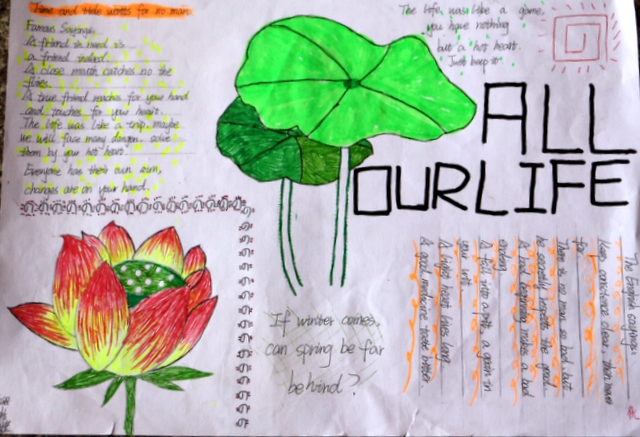 Time and tide waites for no man.
Famous Sayings.
A friend in need is
a friend indeed.
A close mouth catches no the
flies.
A true friend reaches for your hand
and touches for your heart.
The life was like a trip, maybe
we will face many danger, solve
them by you hot heart.
Everyone has their own
changes are on your hand.
The life was like a game,
you have nothing
but a hot heart.
Just keep it.
ALL
OUR LIFE
If winter comes,
can spring be far
behind?
The Famous sayings
keep conscience clear, then never
fear.
There is no man so bad, but
he secretly respects the good.
A bad beginning makes a bad
ending.
A fall into a pit, a gain in
your wit.
A light heart lives long.
A good medicine tastes bitter.